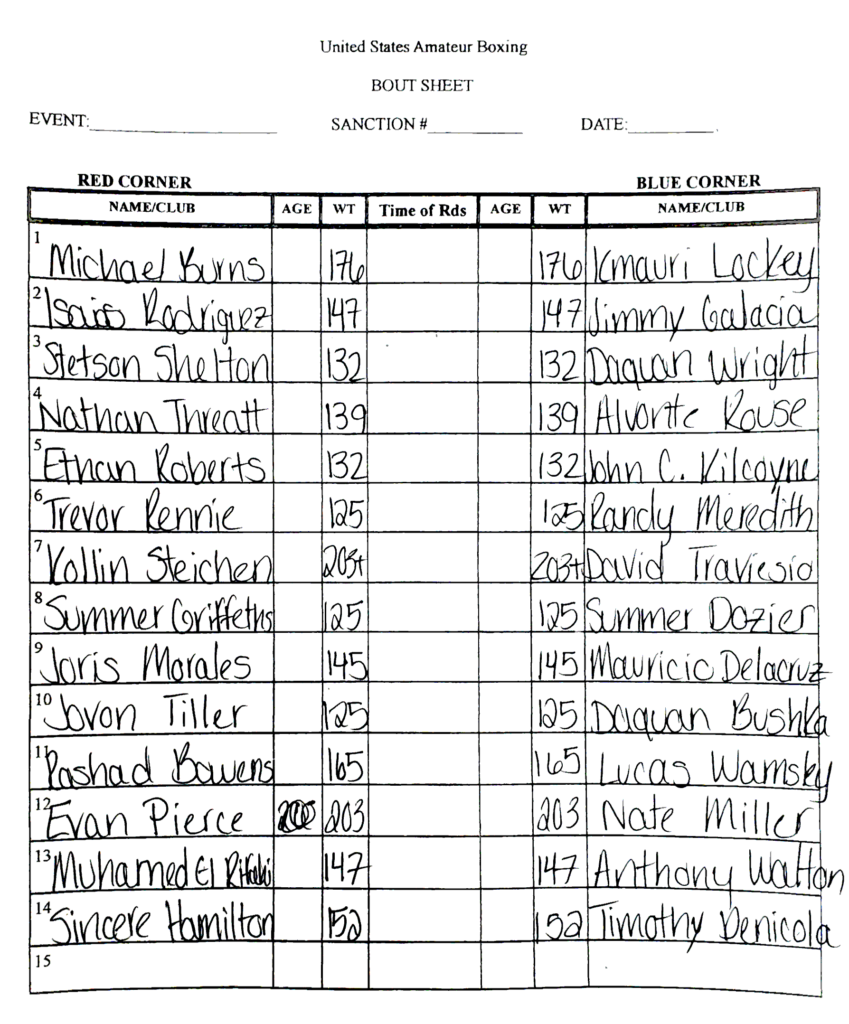 United States Amateur Boxing
BOUT SHEET
EVENT: SANCTION # DATE:
RED CORNER BLUE CORNER
NAME/CLUB AGE WT Time of Rds AGE WT NAME/CLUB
1 Michael Burns 176 176 Kmauri Lockey
2 Isaias Rodriguez 147 147 Jimmy Galacia
3 Stetson Shelton 132 132 Daquan Wright
4 Nathan Threatt 139 139 Alvonte Rouse
5 Ethan Roberts 132 132 John C. Kilcoyne
6 Trevor Rennie 125 125 Randy Meredith
7 Kollin Steichen 203+ 203+ David Traviesio
8 Summer Griffeths 125 125 Summer Dozier
9 Joris Morales 145 145 Mauricio Delacruz
10 Jovon Tiller 125 125 Daquan Bushka
11 Rashad Bowens 165 165 Lucas Wamsky
12 Evan Pierce 203 203 Nate Miller
13 Muhamed El 147 147 Anthony Walton
14 Sincere Hamilton 152 152 Timothy Denicola
15